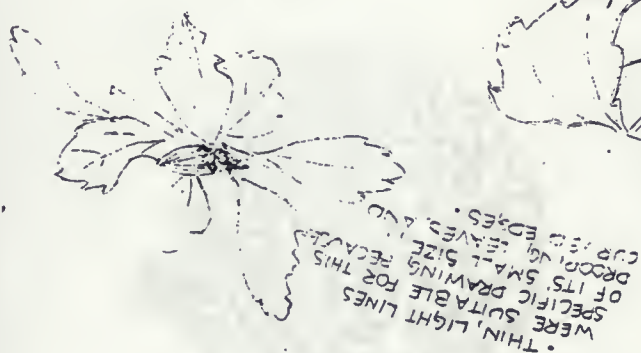 • THIN, LIGHT LINES
WERE SUITABLE FOR THIS
SPECIFIC DRAWING BECAUSE
OF ITS SMALL SIZE,
DROOPING LEAVES, AND
CURVED EDGES.